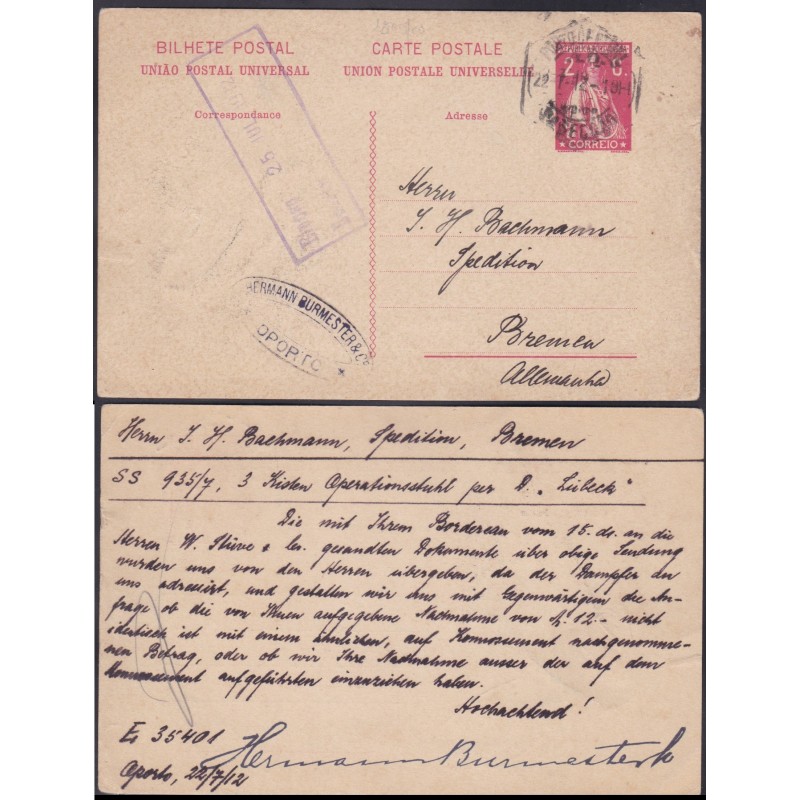 BILHETE POSTAL
UNIÃO POSTAL UNIVERSAL
Correspondance
CARTE POSTALE
UNION POSTALE UNIVERSELLE
Adresse
2 C.
CORREIO
22-7-12-19H
25 JUL
HERMANN BURMESTER & Co
OPORTO
Herrn
J. H. Bachmann
Spedition
Bremen
Allemanha
Herrn J. H. Bachmann, Spedition, Bremen
SS 935/7, 3 Kisten Operationsstuhl per D. „Lübeck"
Die mit Ihrem Bordereau vom 15. ds. an die
Herren W. Stüve & Co. gesandten Dokumente über obige Sendung
wurden uns von den Herren übergeben, da der Dampfer an
uns adressirt, und gestatten wir uns mit Gegenwärtigem die An-
frage ob die von Ihnen aufgegebene Nachnahme von 12.- nicht
identisch ist mit einem ähnlichen, auf Konnossement nachgenomme-
nen Betrag, oder ob wir Ihre Nachnahme ausser der auf dem
Konnossement aufgeführten einzuziehen haben.
Hochachtend!
35401
Hermann Burmester & Co
Oporto, 22/7/12